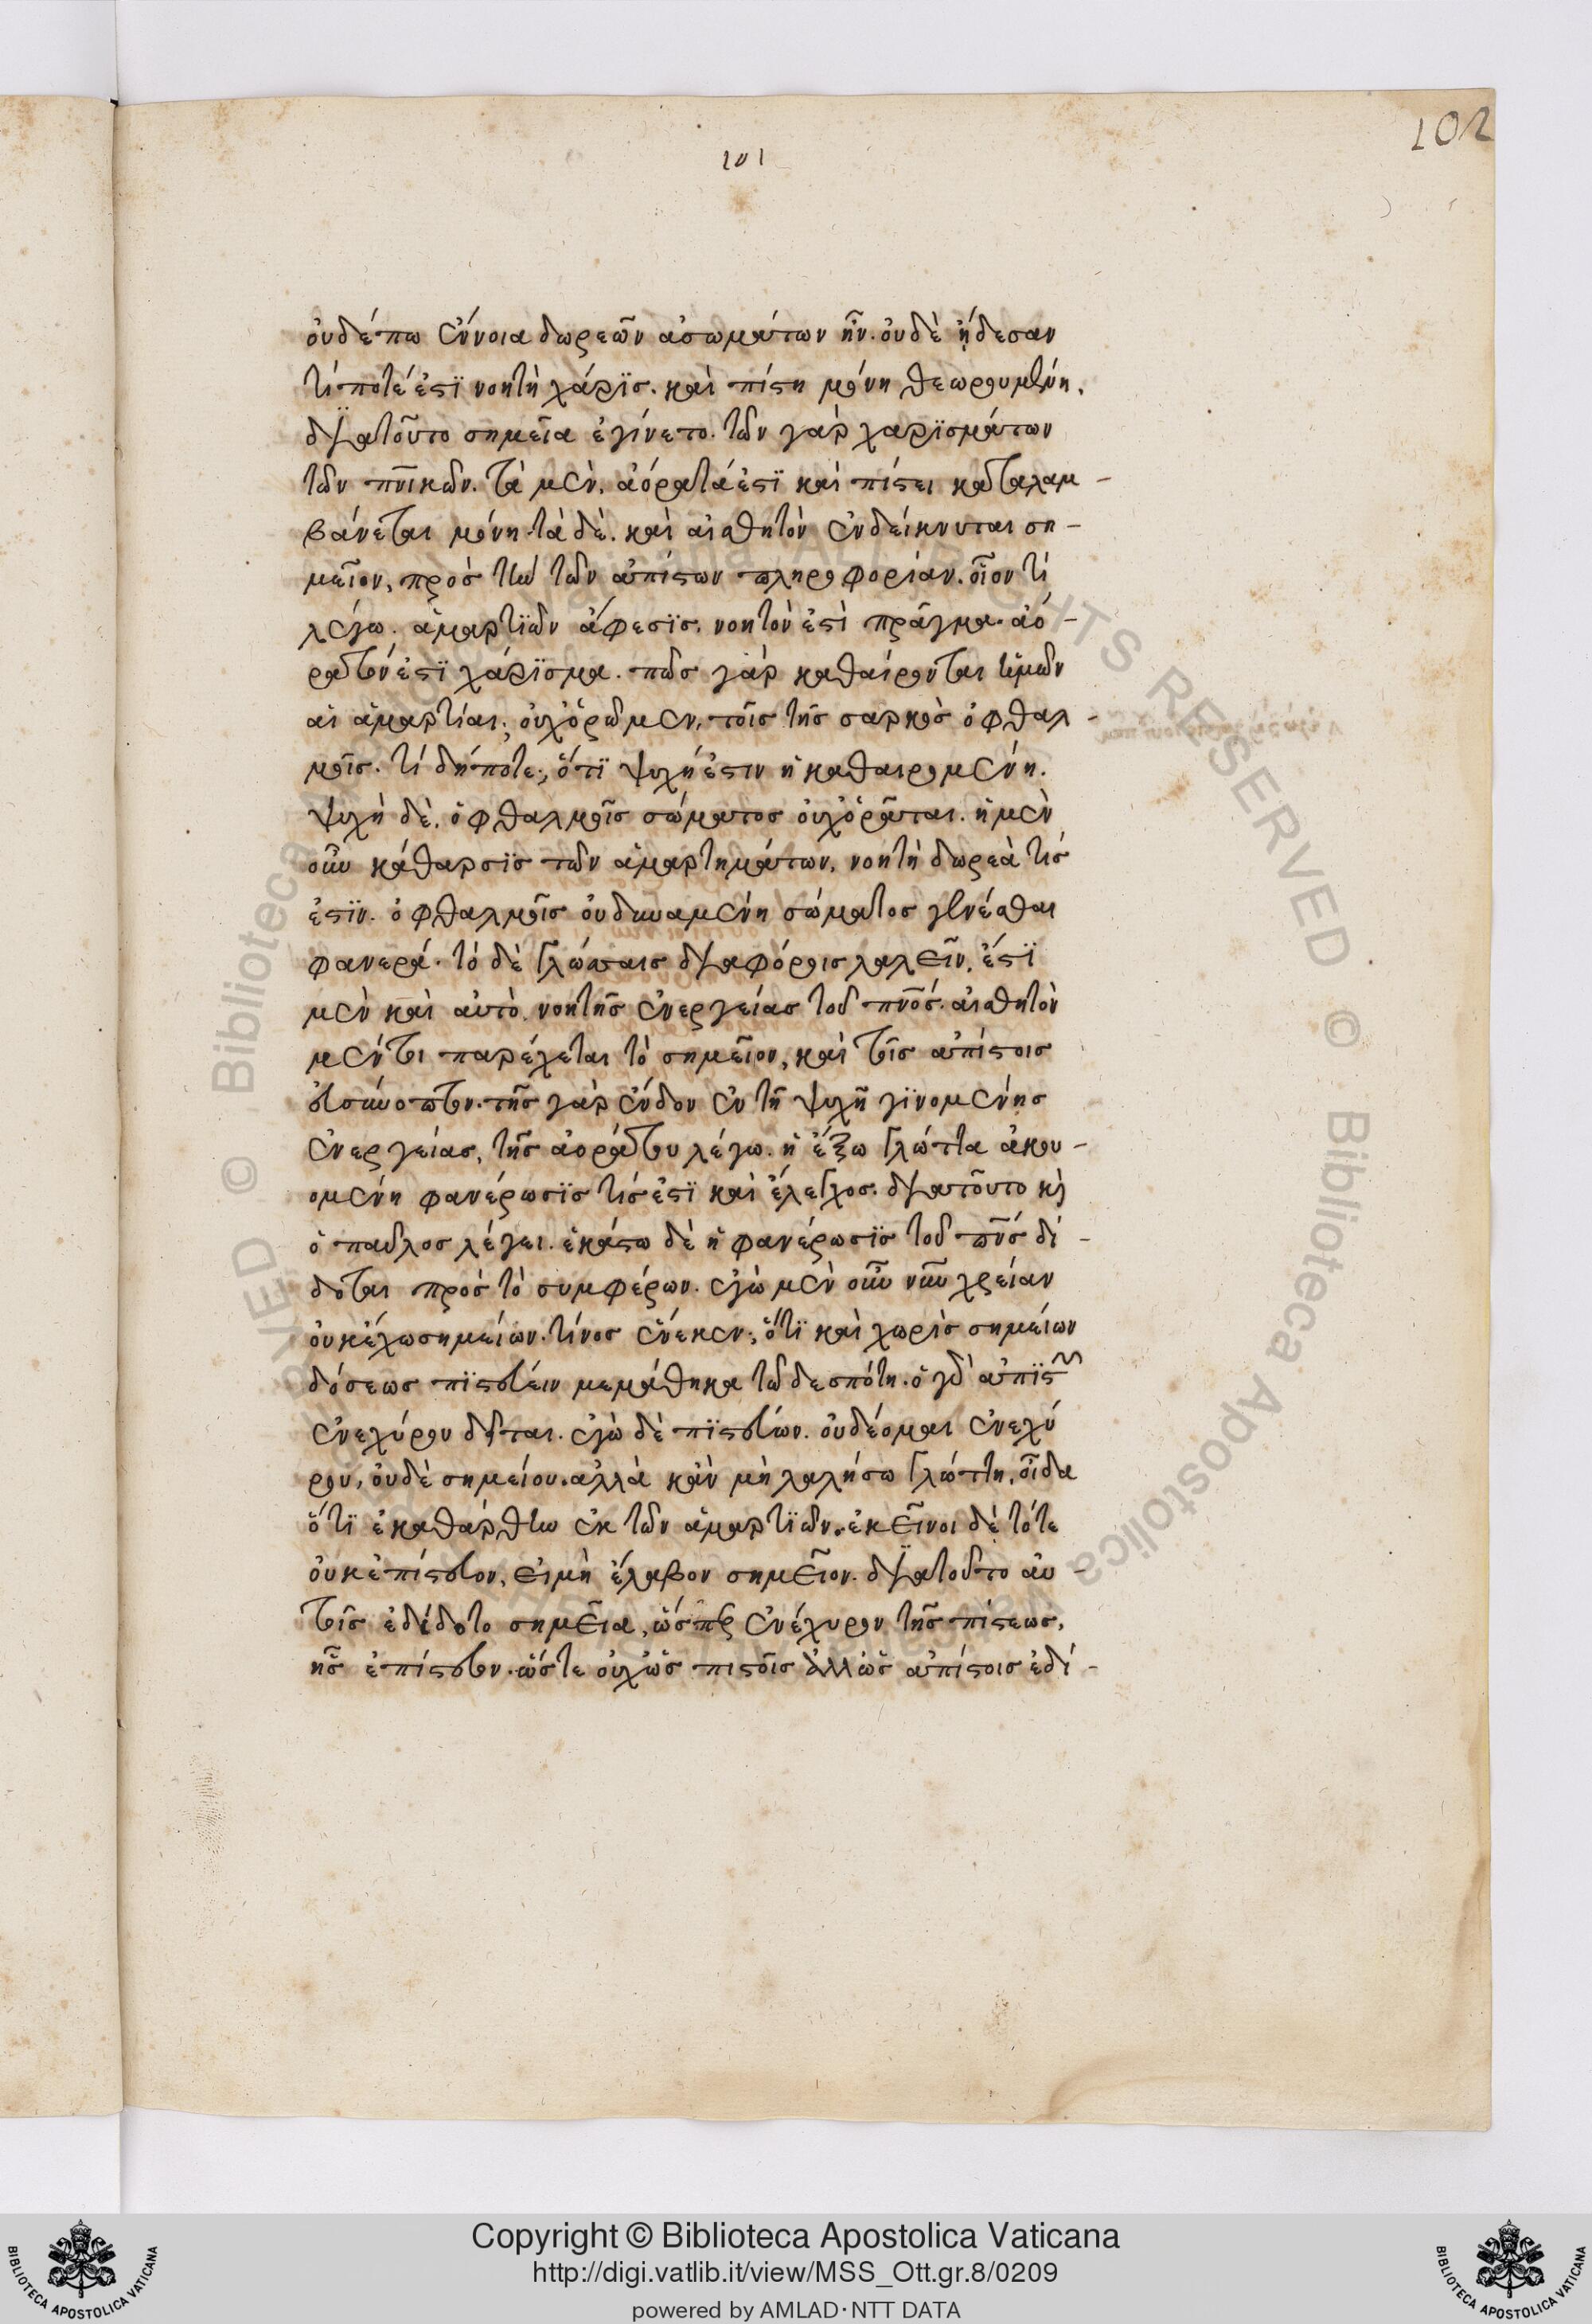 102
101
οὐδέπω ἔννοια δωρεῶν ἀσωμάτων ἦν. οὐδὲ ᾔδεσαν
τί ποτέ ἐστϊ νοητὴ χάρϊς. καὶ πίστη μόνη θεωρουμένη.
δϊατοῦτο σημεῖα ἐγίνετο. τῶν γὰρ χαρϊσμάτων
τῶν πνϊκῶν. τὰ μὲν, ἀόρατά ἐστϊ καὶ πίστει καταλαμ-
βάνεται μόνη. τὰ δὲ. καὶ αἰσθητὸν ἐνδείκνυται ση-
μεῖον, πρὸς τὴν τῶν ἀπίστων πληροφορίαν. οἷόν τί
λέγω. ἁμαρτϊῶν ἄφεσϊς, νοητὸν ἐστὶ πρᾶγμα. ἀό-
ρατόν ἐστϊ χάρϊσμα. πῶς γὰρ καθαίρονται ἡμῶν
αἱ ἁμαρτίαι, οὐχ ὁρῶμεν, τοῖς τῆς σαρκὸς ὀφθαλ-
μοῖς. τί δήποτε; ὅτϊ ψυχή ἐστιν ἡ καθαιρομένη.
ψυχὴ δὲ, ὀφθαλμοῖς σώματος οὐχ ὁρᾶται. ἡ μὲν
οὖν κάθαρσϊς τῶν ἁμαρτημάτων, νοητὴ δωρεὰ τίς
ἐστϊν. ὀφθαλμοῖς οὐ δυναμένη σώματος γενέσθαι
φανερά. τὸ δὲ γλώσσαις δϊαφόροις λαλεῖν, ἔστϊ
μὲν καὶ αὐτὸ νοητῆς ἐνεργείας τοῦ πνος. αἰσθητὸν
μέντοι παρέχεται τὸ σημεῖον, καὶ τοῖς ἀπίστοις
εὐσύνοπτον. τῆς γὰρ ἔνδον ἐν τῆ ψυχῆ γϊνομένης
ἐνεργείας, τῆς ἀοράτου λέγω. ἡ ἔξω γλῶττα ἀκου-
ομένη φανέρωσϊς τίς ἐστϊ καὶ ἔλεγχος. δϊατοῦτο κὶ
ὁ παῦλος λέγει. ἑκάστω δὲ ἡ φανέρωσϊς τοῦ πνς δί-
δοται πρὸς τὸ συμφέρων. ἐγὼ μὲν οὖν νῦν χρείαν
οὐκ ἔχω σημείων. τίνος ἕνεκεν; ὅτϊ καὶ χωρὶς σημείων
δόσεως πϊστεύειν μεμάθηκα τῶ δεσπότη. ὁ γὰρ ἀπϊστῶν
ἐνεχύρου δεῖται. ἐγὼ δὲ πϊστεύων. οὐ δέομαι ἐνεχύ
ρου, οὐδὲ σημείου. ἀλλὰ κἂν μὴ λαλήσω γλώττη, οἶδα
ὅτϊ ἐκαθάρθην ἐκ τῶν ἁμαρτϊῶν. ἐκεῖνοι δὲ τότε
οὐκ ἐπίστευον, εἰ μὴ ἔλαβον σημεῖον. δϊατοῦτο αὐ-
τοῖς ἐδίδοτο σημεῖα, ὥσπερ ἐνέχυρον τῆς πίστεως,
ἧς ἐπίστευον. ὥστε οὐχ ὡς πιστοῖς ἀλλ' ὡς ἀπίστοις ἐδί-
© Biblioteca Apostolica Vaticana. ALL RIGHTS RESERVED
Copyright © Biblioteca Apostolica Vaticana
http://digi.vatlib.it/view/MSS_Ott.gr.8/0209
powered by AMLAD·NTT DATA
BIBLIOTECA APOSTOLICA VATICANA
BIBLIOTECA APOSTOLICA VATICANA